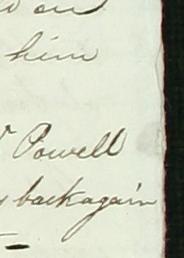 him
Powell
back again